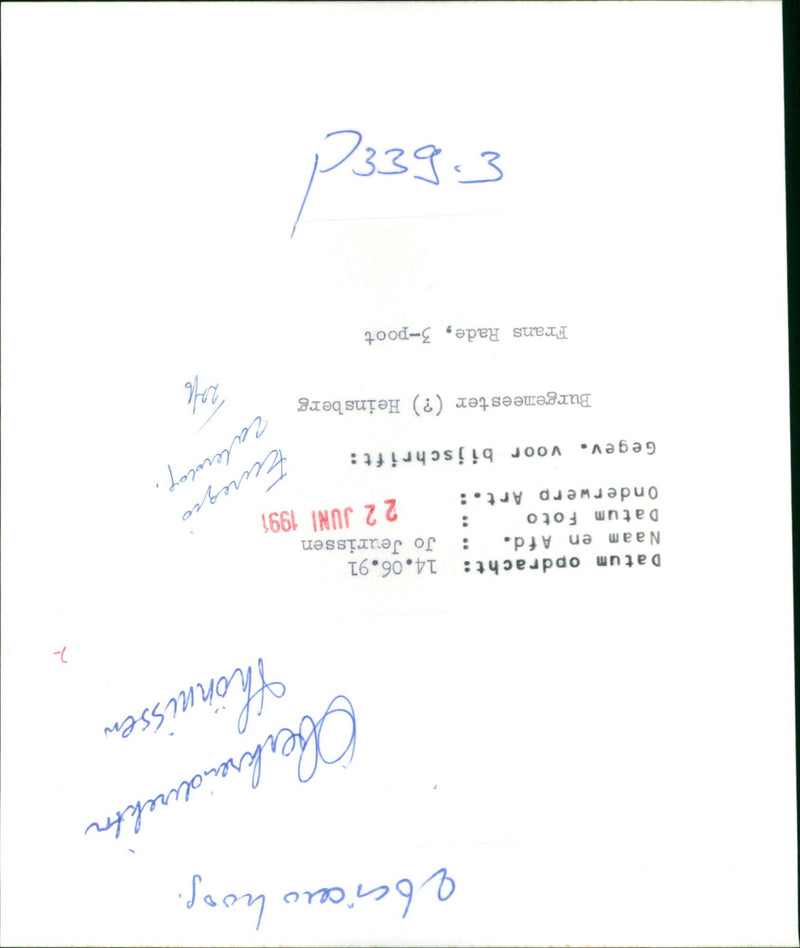 P339.3
Oberkreisdirektor
Thönnissen
Datum opdracht: 14.06.91
Naam en Afd. : Jo Jeurissen
Datum Foto : 22 JUNI 1991
Onderwerp Art.:
Gegev. voor bijschrift:
Euregio
Burgemeester (?) Heinsberg
Frans Rade, 3-poot